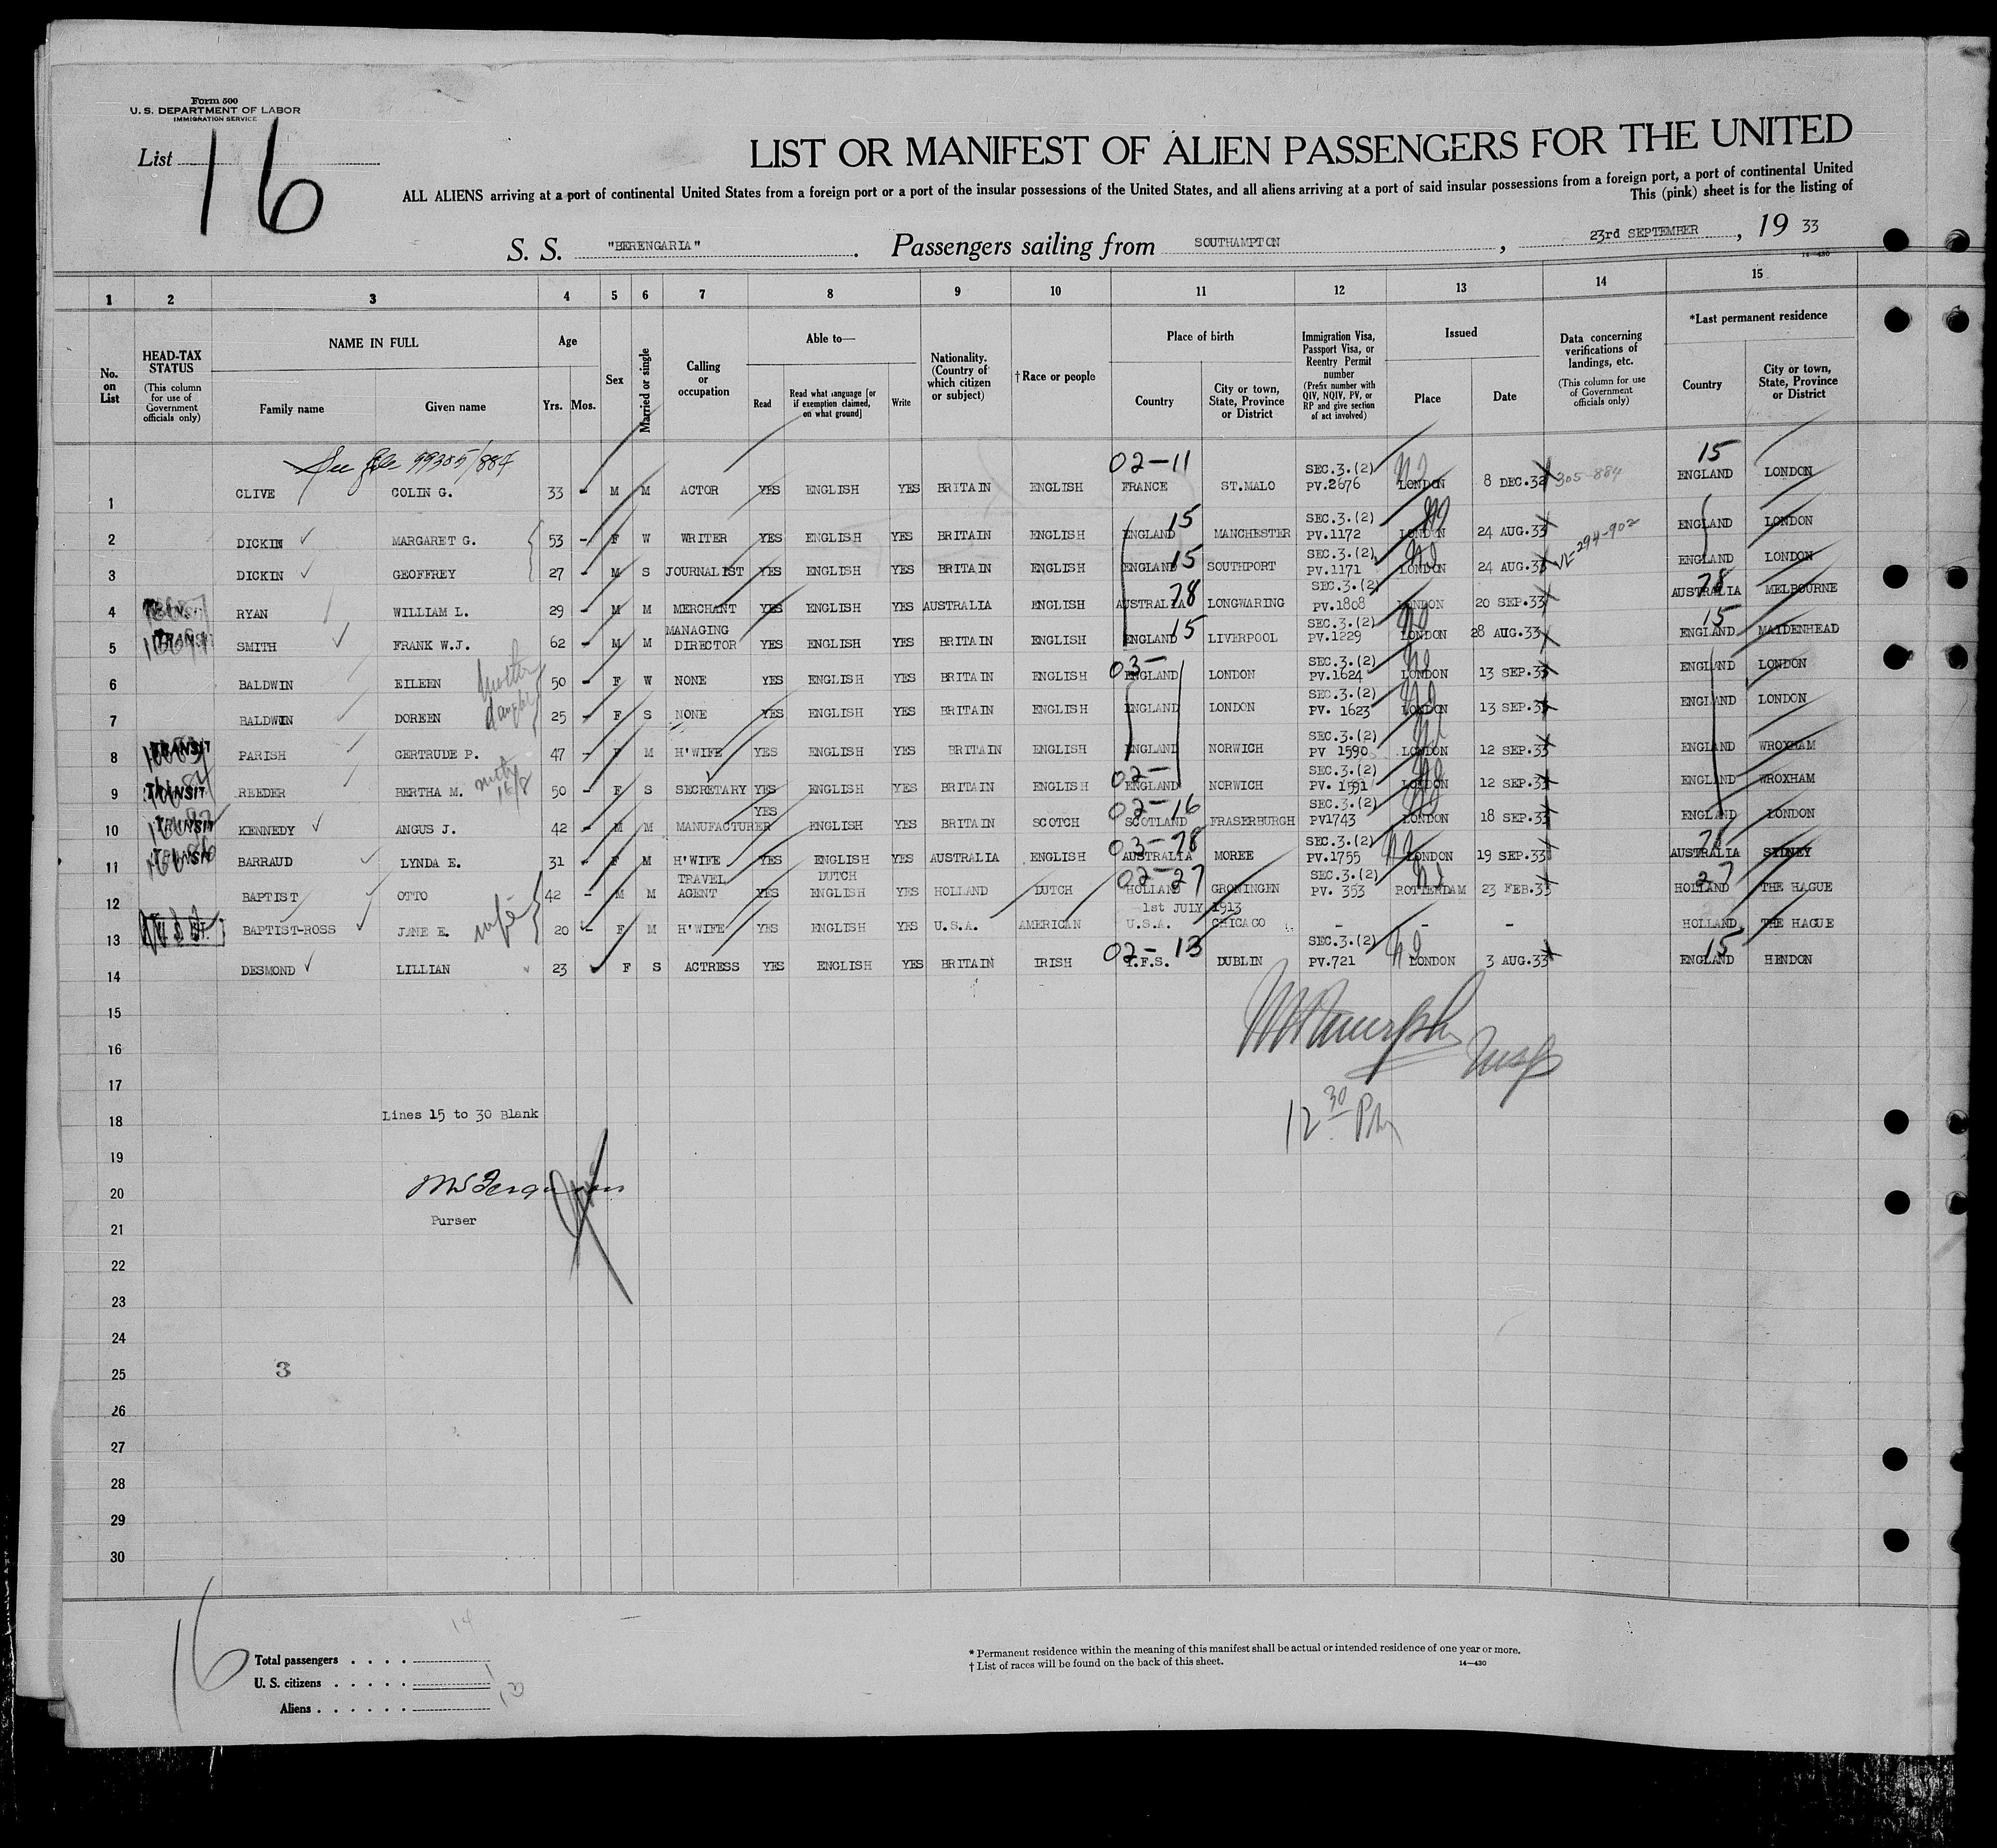 Form 500
U. S. DEPARTMENT OF LABOR
IMMIGRATION SERVICE
List 16
LIST OR MANIFEST OF ALIEN PASSENGERS FOR THE UNITED
ALL ALIENS arriving at a port of continental United States from a foreign port or a port of the insular possessions of the United States, and all aliens arriving at a port of said insular possessions from a foreign port, a port of continental United
This (pink) sheet is for the listing of
S. S. "BERENGARIA". Passengers sailing from SOUTHAMPTON, 23rd SEPTEMBER, 19 33
14—430
1 2 3 4 5 6 7 8 9 10 11 12 13 14 15
No. on List
HEAD-TAX STATUS (This column for use of Government officials only)
NAME IN FULL Family name Given name
Age Yrs. Mos.
Sex
Married or single
Calling or occupation
Able to— Read Read what language [or if exemption claimed, on what ground] Write
Nationality. (Country of which citizen or subject)
†Race or people
Place of birth Country City or town, State, Province or District
Immigration Visa, Passport Visa, or Reentry Permit number (Prefix number with QIV, NQIV, PV, or RP and give section of act involved)
Issued Place Date
Data concerning verifications of landings, etc. (This column for use of Government officials only)
*Last permanent residence Country City or town, State, Province or District
See file 99305/884
1 CLIVE COLIN G. 33 - M M ACTOR YES ENGLISH YES BRITAIN ENGLISH 02-11 FRANCE ST.MALO SEC.3.(2) PV.2676 LONDON 8 DEC.32 305-884 15 ENGLAND LONDON
2 DICKIN MARGARET G. 53 - F W WRITER YES ENGLISH YES BRITAIN ENGLISH ENGLAND 15 MANCHESTER SEC.3.(2) PV.1172 LONDON 24 AUG.33 ENGLAND LONDON
3 DICKIN GEOFFREY 27 - M S JOURNALIST YES ENGLISH YES BRITAIN ENGLISH ENGLAND 15 SOUTHPORT SEC.3.(2) PV.1171 LONDON 24 AUG.33 VL=294-902 ENGLAND LONDON
4 RYAN WILLIAM L. 29 - M M MERCHANT YES ENGLISH YES AUSTRALIA ENGLISH AUSTRALIA 78 LONGWARING SEC.3.(2) PV.1808 LONDON 20 SEP.33 78 AUSTRALIA MELBOURNE
5 SMITH FRANK W.J. 62 - M M MANAGING DIRECTOR YES ENGLISH YES BRITAIN ENGLISH ENGLAND 15 LIVERPOOL SEC.3.(2) PV.1229 LONDON 28 AUG.33 15 ENGLAND MAIDENHEAD
6 BALDWIN EILEEN mother 50 - F W NONE YES ENGLISH YES BRITAIN ENGLISH 03- ENGLAND LONDON SEC.3.(2) PV.1624 LONDON 13 SEP.33 ENGLAND LONDON
7 BALDWIN DOREEN 25 - F S NONE YES ENGLISH YES BRITAIN ENGLISH ENGLAND LONDON SEC.3.(2) PV. 1623 LONDON 13 SEP.33 ENGLAND LONDON
8 TRANSIT PARISH GERTRUDE P. 47 - F M H'WIFE YES ENGLISH YES BRITAIN ENGLISH ENGLAND NORWICH SEC.3.(2) PV 1590 LONDON 12 SEP.33 ENGLAND WROXHAM
9 TRANSIT REEDER BERTHA M. 50 - F S SECRETARY YES ENGLISH YES BRITAIN ENGLISH 02- ENGLAND NORWICH SEC.3.(2) PV. 1591 LONDON 12 SEP.33 ENGLAND WROXHAM
10 TRANSIT KENNEDY ANGUS J. 42 - M M MANUFACTURER YES ENGLISH YES BRITAIN SCOTCH 02-16 SCOTLAND FRASERBURGH SEC.3.(2) PV1743 LONDON 18 SEP.33 ENGLAND LONDON
11 TRANSIT BARRAUD LYNDA E. 31 - F M H'WIFE YES ENGLISH YES AUSTRALIA ENGLISH 03-78 AUSTRALIA MOREE SEC.3.(2) PV.1755 LONDON 19 SEP.33 78 AUSTRALIA SYDNEY
12 BAPTIST OTTO 42 - M M TRAVEL AGENT YES DUTCH ENGLISH YES HOLLAND DUTCH 02-27 HOLLAND GRONINGEN SEC.3.(2) PV. 353 ROTTERDAM 23 FEB.33 27 HOLLAND THE HAGUE
13 BAPTIST-ROSS JANE E. wife 20 - F M H'WIFE YES ENGLISH YES U.S.A. AMERICAN 1st JULY 1913 U.S.A. CHICAGO - - - HOLLAND THE HAGUE
14 DESMOND LILLIAN 23 F S ACTRESS YES ENGLISH YES BRITAIN IRISH 02-13 I.F.S. DUBLIN SEC.3.(2) PV.721 LONDON 3 AUG.33 15 ENGLAND HENDON
15
16
17
18 Lines 15 to 30 Blank
12 30 PM
19
20
Purser
21
22
23
24
25 3
26
27
28
29
30
16
Total passengers . . . . 14
U. S. citizens . . . . . 1
Aliens . . . . . . 13
* Permanent residence within the meaning of this manifest shall be actual or intended residence of one year or more.
† List of races will be found on the back of this sheet.
14—430